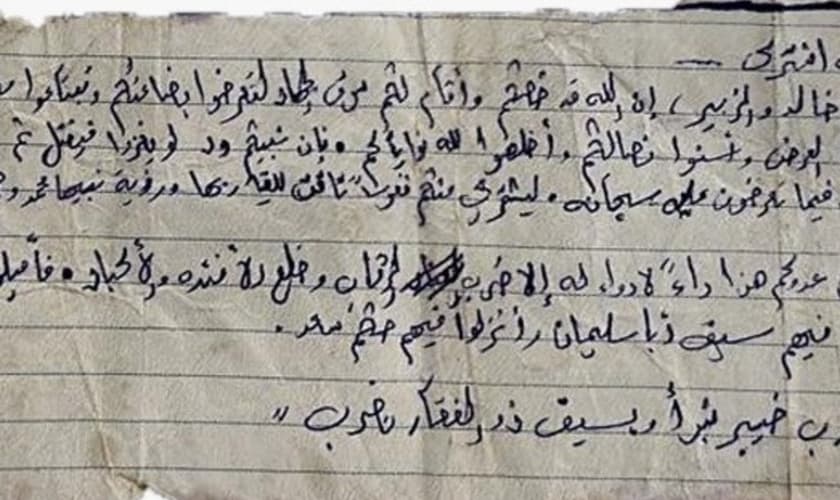 افترى —
خالد والزبير، إن الله قد خصكم وأقام لكم سوق الجهاد لتعرضوا بضاعتكم وتبتاعوا
العرض وأحسنوا نصالكم وأخلصوا لله نواياكم. فإن نبيكم ود لو يغزوا فيقتل ثم
فيما تعرضون عليه سبحانه. ليشتري منكم نفوساً تاقت للقاء ربها ورؤية نبيها محمد
عدوكم هذا داءٌ لا دواء له إلا ضرب الرقاب وخلع الأفئدة والأكباد.
فيهم سيوف أبا سليمان وأنزلوا فيهم حكم سعد.
خيبر نبرأ وبسيف ذو الفقار نضرب"